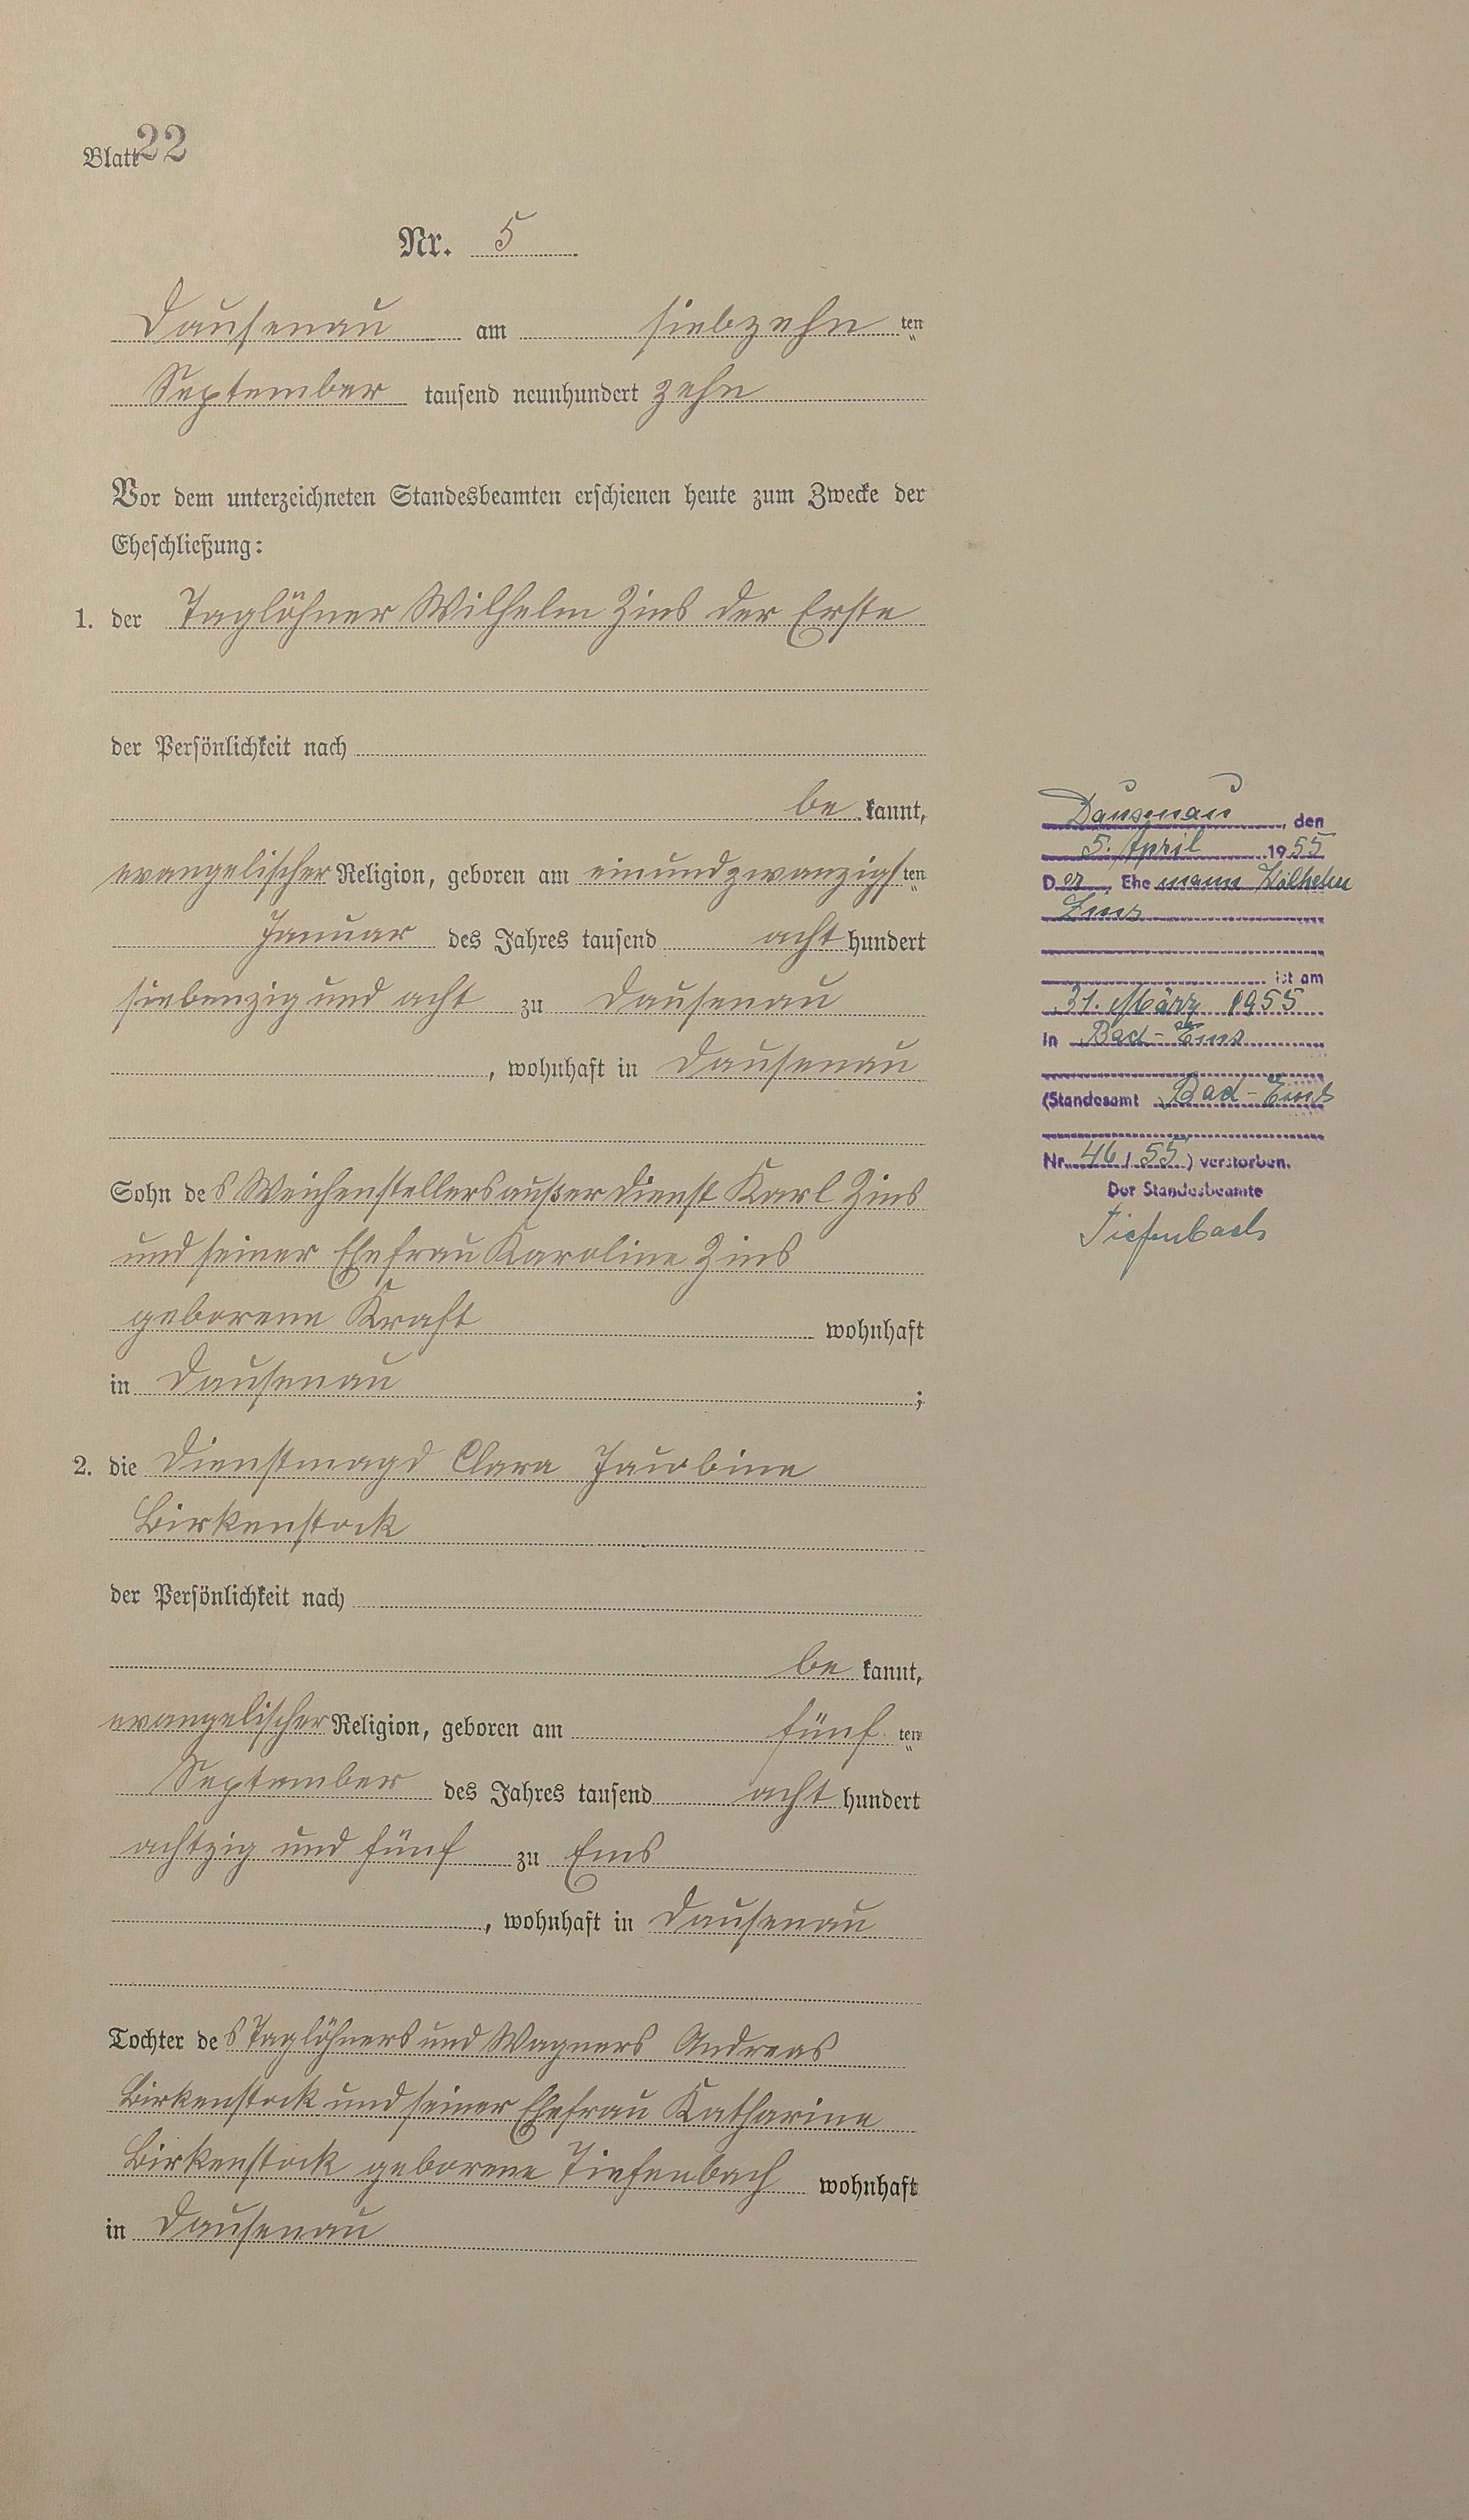 Blatt 22
Nr. 5
Dausenau am siebzehn ten
September tausend neunhundert zehn
Vor dem unterzeichneten Standesbeamten erschienen heute zum Zwecke der
Eheschließung:
1. der Taglöhner Wilhelm Zins der Erste
der Persönlichkeit nach
be kannt,
evangelischer Religion, geboren am einundzwanzigs ten
Januar des Jahres tausend acht hundert
siebenzig und acht zu Dausenau
, wohnhaft in Dausenau
Sohn des Weichenstellers außer Dienst Karl Zins
und seiner Ehefrau Karoline Zins
geborene Kraft wohnhaft
in Dausenau ;
2. die Dienstmagd Clara Jacobine
Birkenstock
der Persönlichkeit nach
be kannt,
evangelischer Religion, geboren am fünf ten
September des Jahres tausend acht hundert
achtzig und fünf zu Ems
, wohnhaft in Dausenau
Tochter des Taglöhners und Wagners Andreas
Birkenstock und seiner Ehefrau Katharine
Birkenstock geborene Tiefenbach wohnhaft
in Dausenau
Dausenau, den
5. April 1955
Der Ehemann Wilhelm
Zins
ist am
31. März 1955
in Bad-Ems
(Standesamt Bad-Ems
Nr. 46 / 55) verstorben.
Der Standesbeamte
Tiefenbach